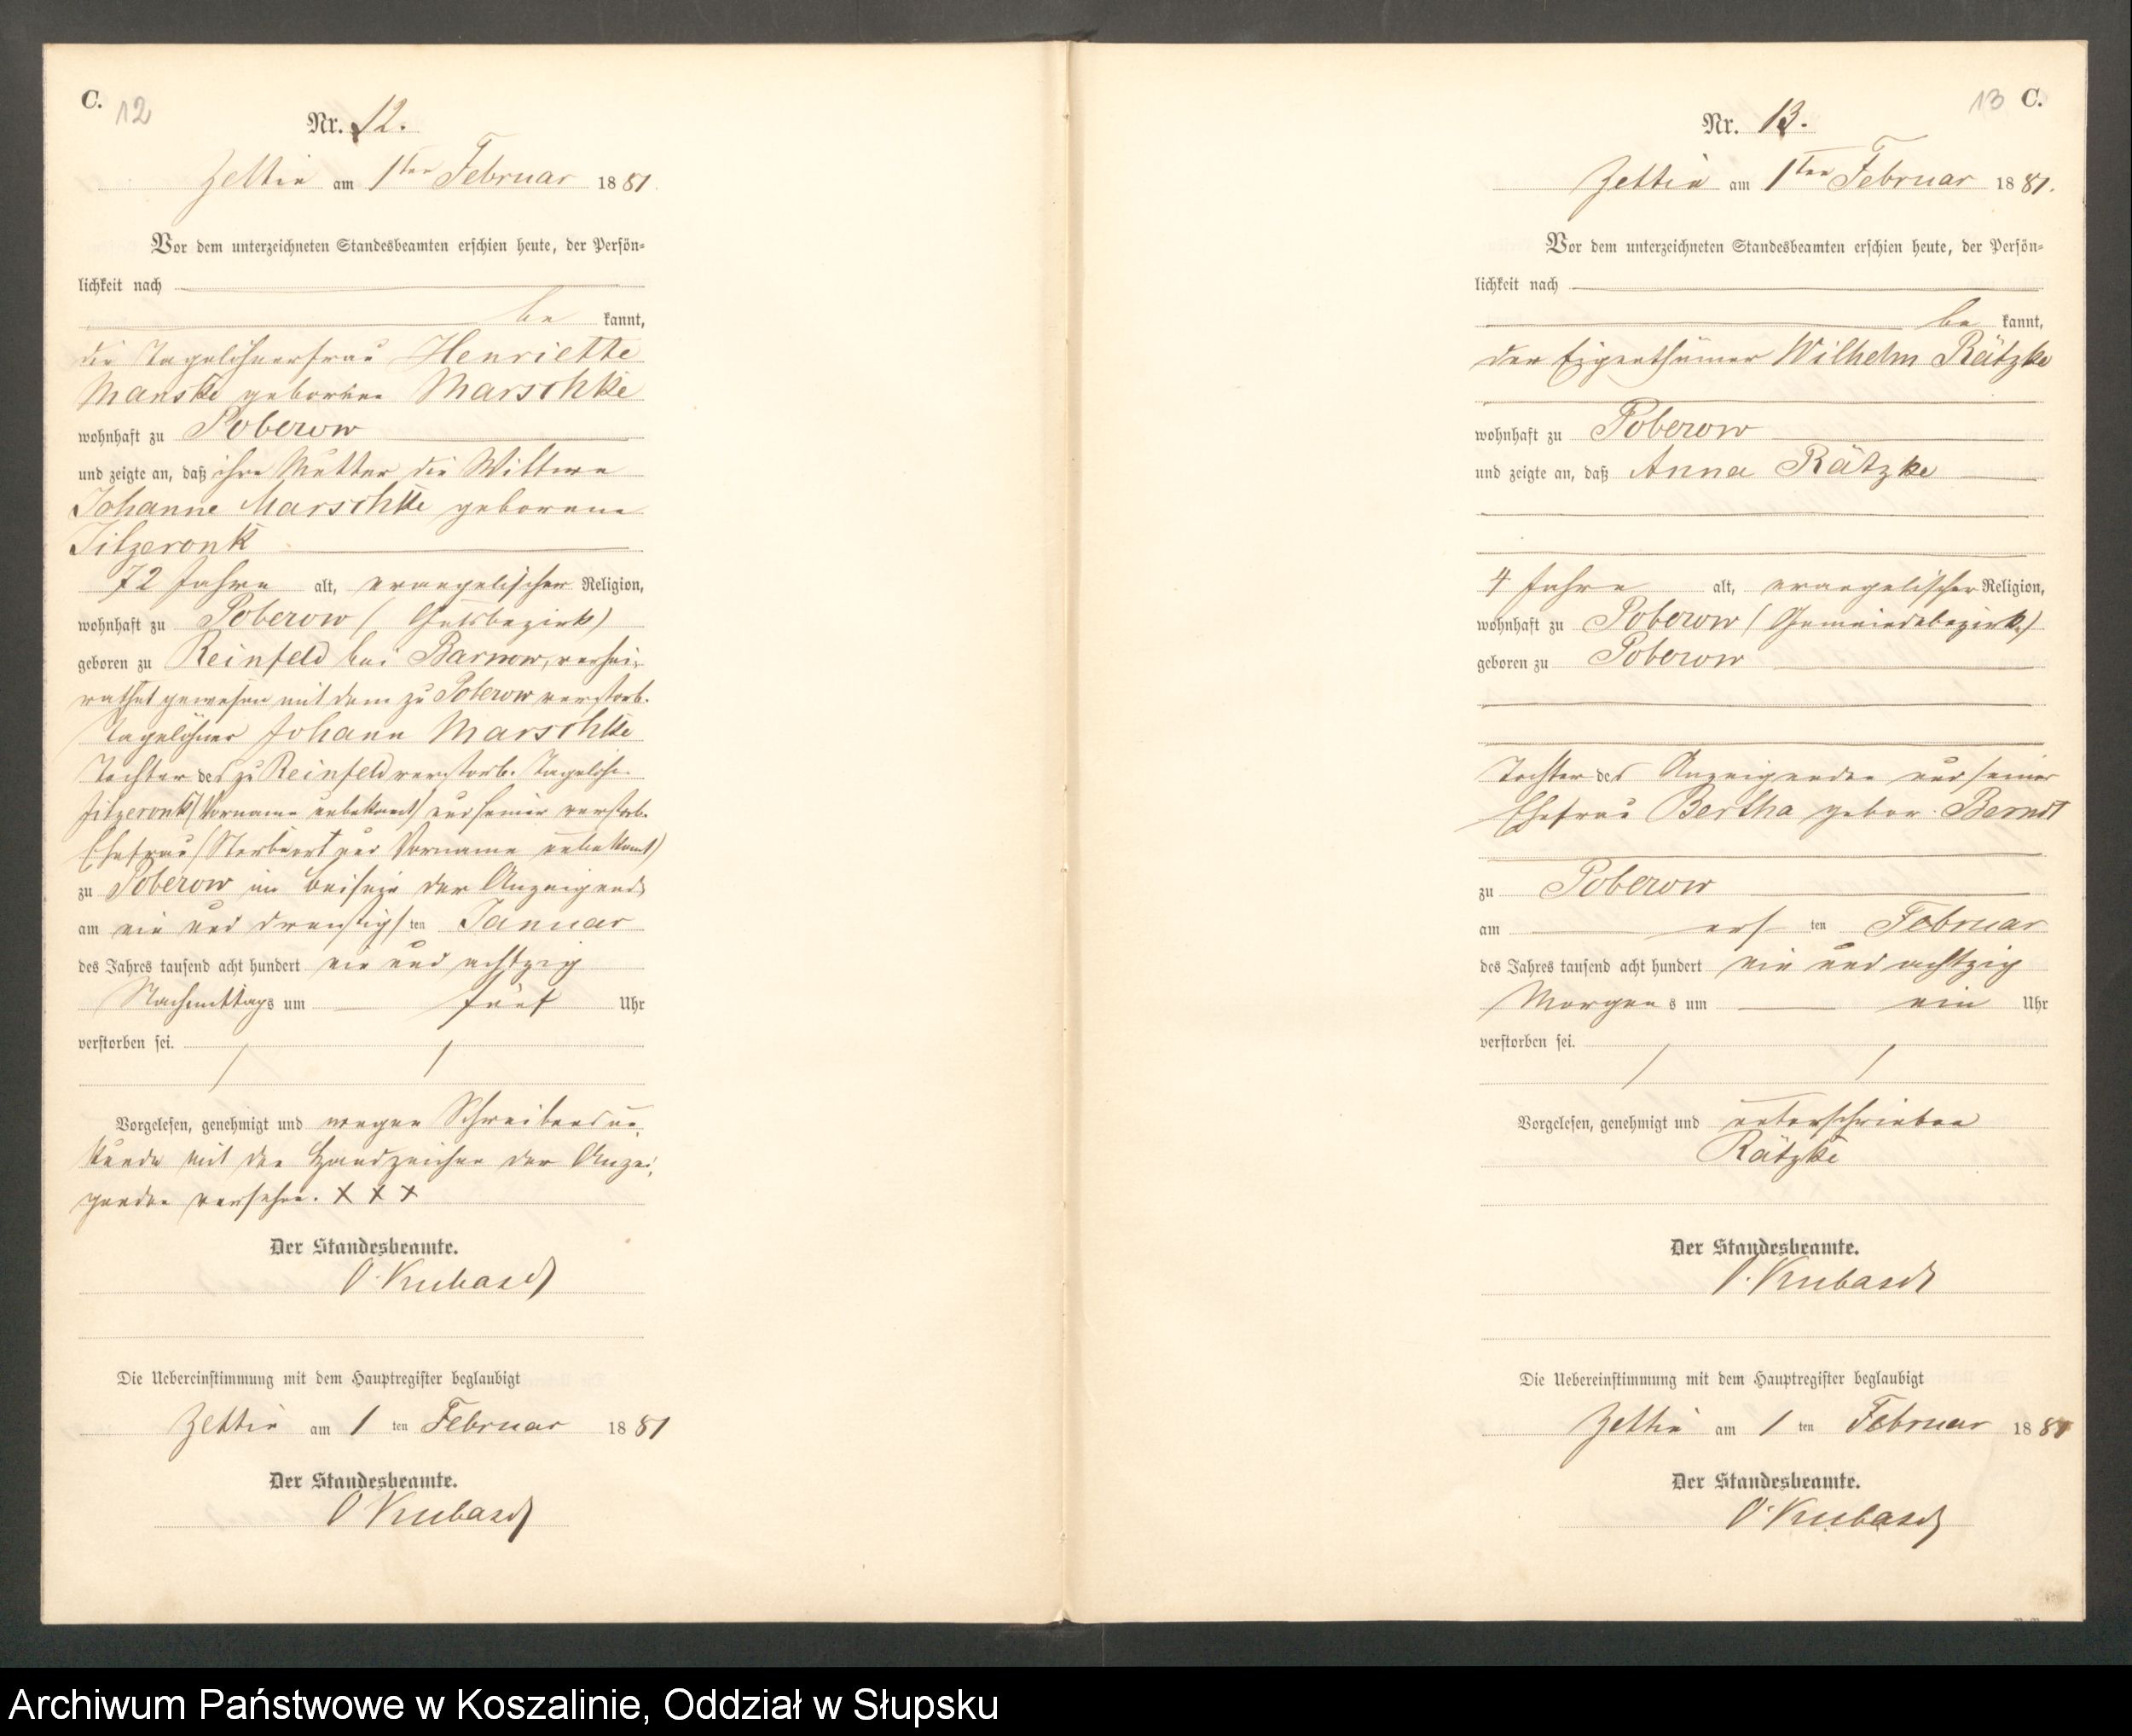 C. 12
Nr. 12.
Zettin am 1ten Februar 1881.
Vor dem unterzeichneten Standesbeamten erschien heute, der Persön-
lichkeit nach
be kannt,
die Tagelöhnerfrau Henriette
Manske geborene Marschke
wohnhaft zu Poberow
und zeigte an, daß ihre Mutter die Wittwe
Johanne Marschke geborene
Jitzeronk
72 Jahre alt, evangelischer Religion,
wohnhaft zu Poberow (Gutsbezirk)
geboren zu Reinfeld bei Barnow, verhei-
rathet gewesen mit dem zu Poberow verstorb.
Tagelöhner Johann Marschke
Tochter des zu Reinfeld verstorb. Tagelöh.
Jitzeronk (Vorname unbekannt) und seiner verstorb.
Ehefrau (Sterbeort und Vorname unbekannt)
zu Poberow im Beisein der Anzeigende
am ein und dreißigsten Januar
des Jahres tausend acht hundert ein und achtzig
Nachmittags um fünf Uhr
verstorben sei.
Vorgelesen, genehmigt und wegen Schreibensun-
kunde mit den Handzeichen der Anzei-
genden versehen. X X X
Der Standesbeamte.
O. Kubasch
Die Uebereinstimmung mit dem Hauptregister beglaubigt
Zettin am 1 ten Februar 1881
Der Standesbeamte.
O Kubasch
13 C.
Nr. 13.
Zettin am 1ten Februar 1881.
Vor dem unterzeichneten Standesbeamten erschien heute, der Persön-
lichkeit nach
be kannt,
der Eigenthümer Wilhelm Rätzke
wohnhaft zu Poberow
und zeigte an, daß Anna Rätzke
4 Jahre alt, evangelischer Religion,
wohnhaft zu Poberow (Gemeindebezirk)
geboren zu Poberow
Tochter des Anzeigenden und seiner
Ehefrau Bertha gebor. Berndt
zu Poberow
am ersten Februar
des Jahres tausend acht hundert ein und achtzig
Morgens um ein Uhr
verstorben sei.
Vorgelesen, genehmigt und unterschrieben
Rätzke
Der Standesbeamte.
O. Kubasch
Die Uebereinstimmung mit dem Hauptregister beglaubigt
Zettin am 1 ten Februar 1881
Der Standesbeamte.
O. Kubasch
Archiwum Państwowe w Koszalinie, Oddział w Słupsku